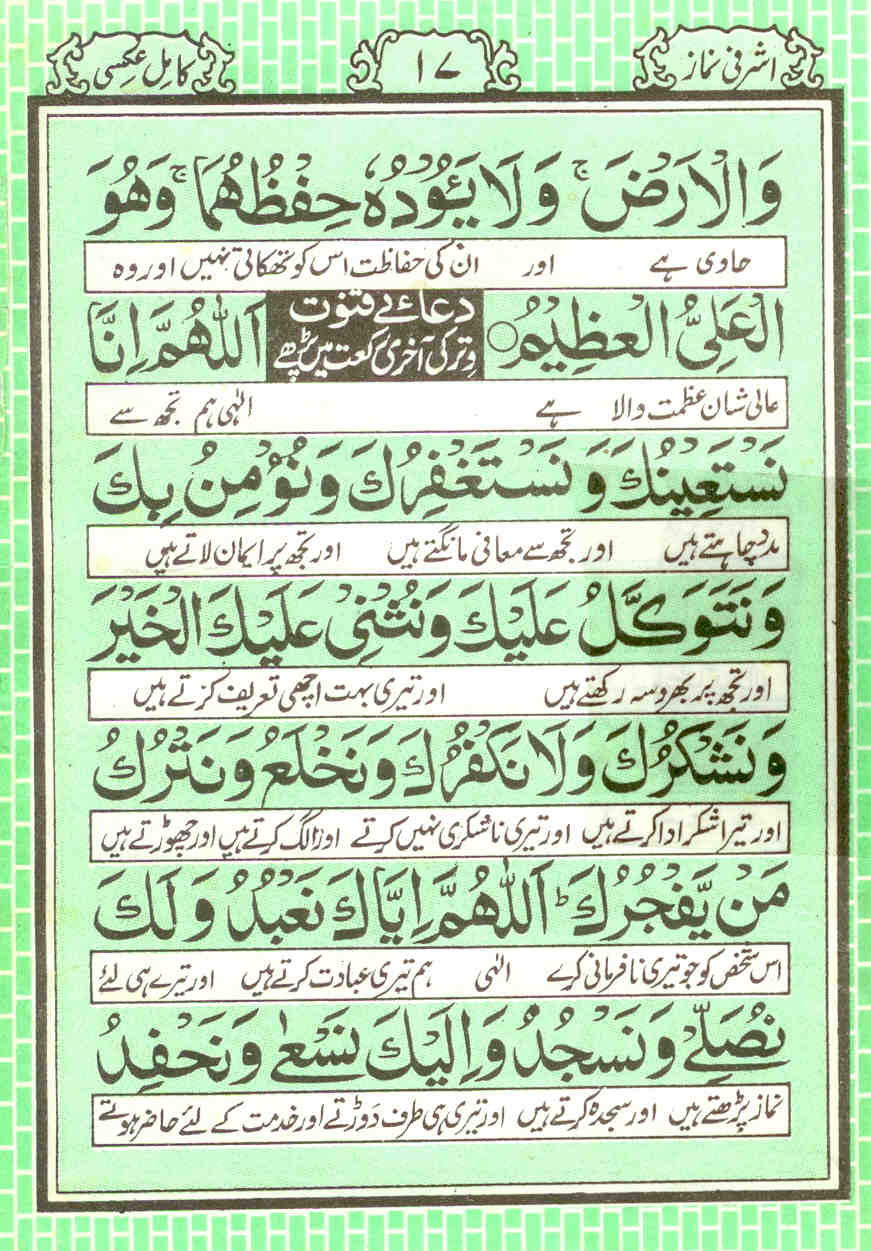 اشرفی نماز ۱۷ کامل عکسی
وَالْاَرْضَ ۚ وَلَا يَـُٔوْدُهٗ حِفْظُهُمَا ۚ وَهُوَ
حاوی ہے اور ان کی حفاظت اس کو تھکاتی نہیں اور وہ
الْعَلِیُّ الْعَظِيْمُ ○ دعائے قنوت وتر کی آخری رکعت میں پڑھے اَللّٰهُمَّ اِنَّا
عالی شان عظمت والا ہے الٰہی ہم تجھ سے
نَسْتَعِيْنُكَ وَنَسْتَغْفِرُكَ وَنُؤْمِنُ بِكَ
مدد چاہتے ہیں اور تجھ سے معافی مانگتے ہیں اور تجھ پر ایمان لاتے ہیں
وَنَتَوَكَّلُ عَلَيْكَ وَنُثْنِیْ عَلَيْكَ الْخَيْرَ
اور تجھ پر بھروسہ رکھتے ہیں اور تیری بہت اچھی تعریف کرتے ہیں
وَنَشْكُرُكَ وَلَا نَكْفُرُكَ وَنَخْلَعُ وَنَتْرُكُ
اور تیرا شکر ادا کرتے ہیں اور تیری ناشکری نہیں کرتے اور الگ کرتے ہیں اور چھوڑتے ہیں
مَنْ يَّفْجُرُكَ ؕ اَللّٰهُمَّ اِيَّاكَ نَعْبُدُ وَلَكَ
اس شخص کو جو تیری نافرمانی کرے الٰہی ہم تیری عبادت کرتے ہیں اور تیرے ہی لئے
نُصَلِّیْ وَنَسْجُدُ وَاِلَيْكَ نَسْعٰی وَنَحْفِدُ
نماز پڑھتے ہیں اور سجدہ کرتے ہیں اور تیری ہی طرف دوڑتے اور خدمت کے لئے حاضر ہوتے